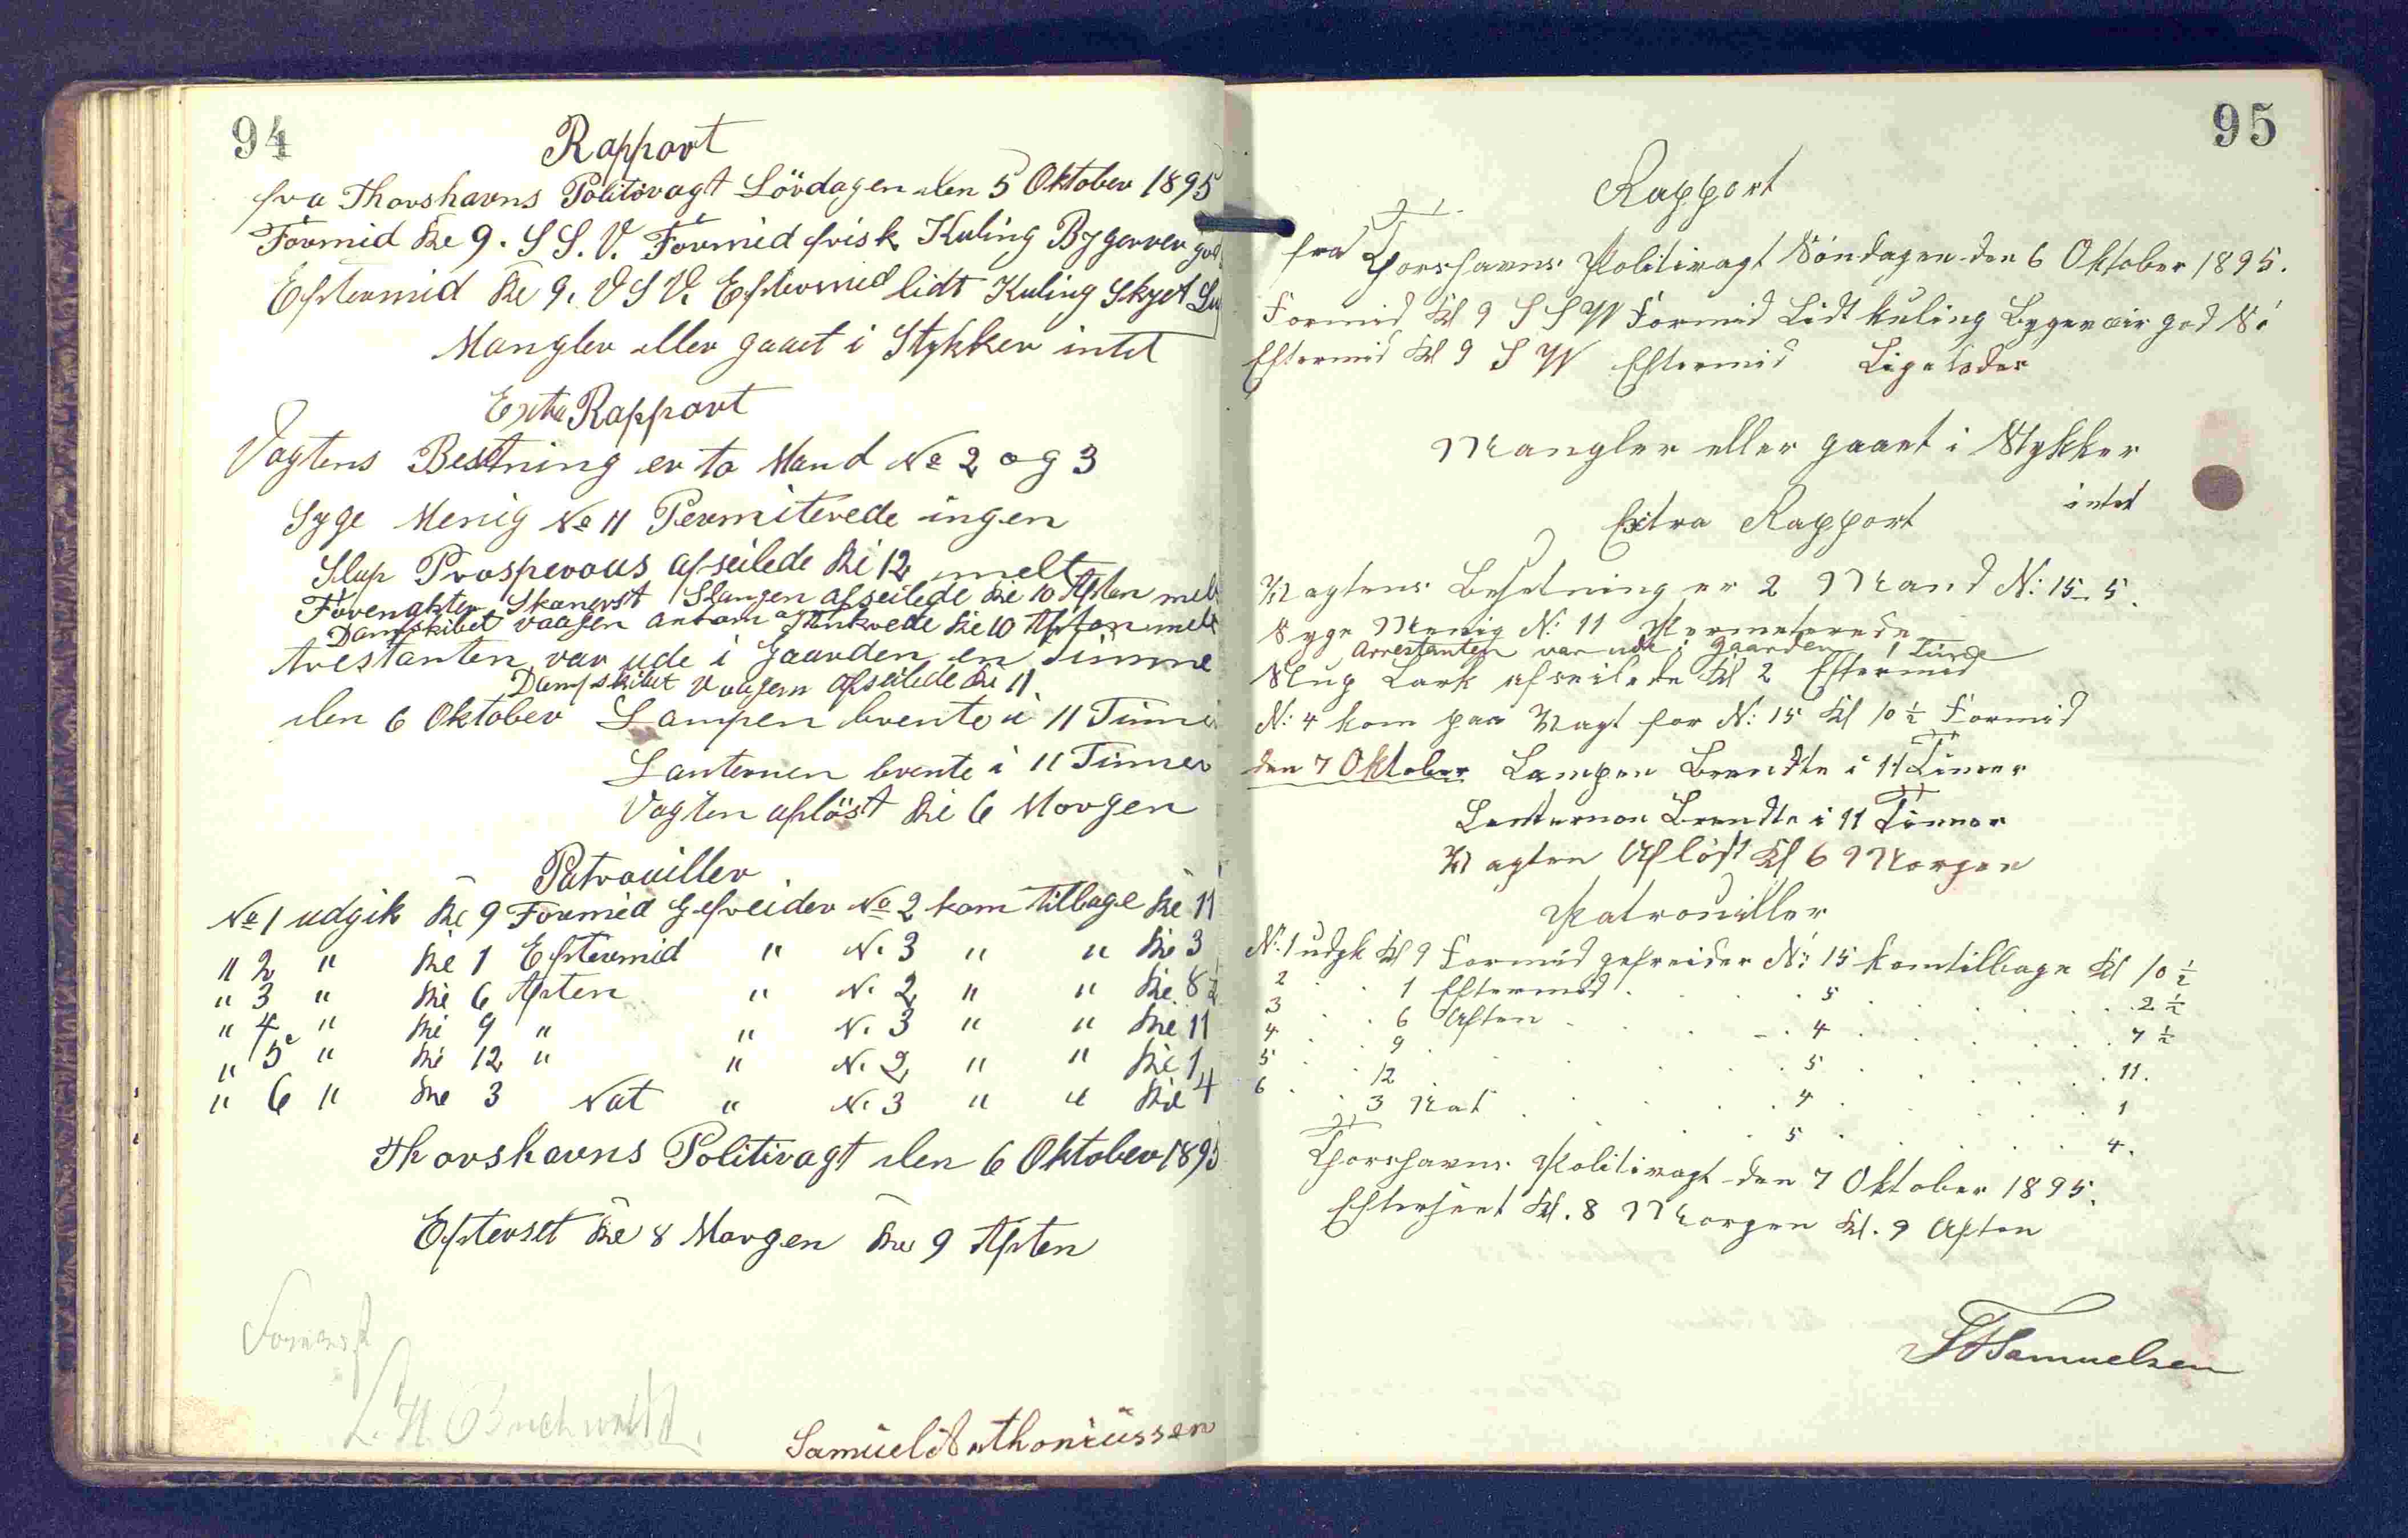 94
Rapport
fra Thorshavns Politivagt Lövdagen den 5 Oktober 1895
Formid Kl 9. S S. V. Formid frisk Kuling Bygerver god
Eftermid Kl 9. V S V. Eftermid lidt Kuling Skyet
Mangler eller gaaet i Stykker intet
Extra Rapport
Vagtens Besetning er to Mand No 2 og 3
Syge Menig No 11 Permiterede ingen
Slup Prosperous afseilede Kl 12 melt
Slangen afseilede Kl 10 Aften melt
Damskibet Vaagen ankom og Ankrede Kl 10 Aften melt
Arestanten var ude i Gaarden en Timme
Dampskibet Vaagen afseilede Kl 11
den 6 Oktober Lampen brente i 11 Timer
Lanternen brente i 11 Timer
Vagten aflöst Kl 6 Morgen
Patrouiller
No 1 udgik Kl 9 Formid Gefreider No 2 kom tilbage Kl 11
" 2 " Kl 1 Eftermid " No 3 " " Kl 3
" 3 " Kl 6 Aften " No 2 " " Kl 8 ½
" 4 " Kl 9 " " No 3 " " Kl 11
" 5 " Kl 12 " " No 2 " " Kl 1
" 6 " Kl 3 Nat " No 3 " " Kl 4
Thorshavns Politivagt den 6 Oktober 1895
Efterset Kl 8 Morgen Kl 9 Aften
Forevist
L. H. Buchwald.
Samuel Anthoniussen
95
Rapport
fra Thorshavns Politivagt Söndagen den 6 Oktober 1895.
Formid Kl 9 S S W Formid Lidt kuling Bygeveir god Sö
Eftermid Kl 9 S W Eftermid Ligeledes
Mangler eller gaaet i Stykker
intet
Extra Rapport
Wagtens Besetning er 2 Mand N: 15 - 5.
Syge Menig N: 11 Permeterede
Arrestanten var ude i Gaarden 1 Time
Slup Lark afseilede Kl 2 Eftermid
N: 4 kom paa Wagt for N: 15 Kl 10 ½ Formid
den 7 Oktober Lampen Brendte i 11 Timer
Lanternen Brendte i 11 Timer
Wagten Aflöst Kl 6 Morgen
Patrouiller
N: 1 udgk Kl 9 Formid gefreider N: 15 kom tilbage Kl 10 ½
2 . . 1 Eftermid . . 5 . . . 2 ½
3 . . 6 Aften . . 4 . . . 7 ½
4 . . 9 . . . 5 . . . 11.
5 . . 12 . . . 4 . . . 1
6 . . 3 Nat . . 5 . . . 4.
Thorshavns Politivagt den 7 Oktober 1895.
Efterseet Kl. 8 Morgen Kl. 9 Aften
Samuelsen